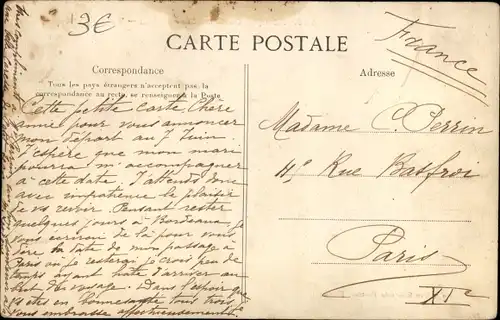 3€
France
CARTE POSTALE
Correspondance
Adresse
Tous les pays étrangers n'acceptent pas la
correspondance au recto, se renseigner à la Poste
Cette petite carte Chère
amie pour vous annoncer
mon départ au 7 Juin.
J'espère que mon mari
pourra m'accompagner
à cette date. J'attends donc
avec impatience le plaisir
de vs revoir. Pensant rester
quelques jours à Bordeaux je
vous écrirai de là pour vous
dire la date de mon passage à
Paris où je resterai je crois peu de
temps ayant hâte d'arriver au
but du voyage. Dans l'espoir que
vs êtes en bonne santé tous trois
vous embrasse affectueusement
Madame C. Perrin
Rue Basfroi
Paris
XIe